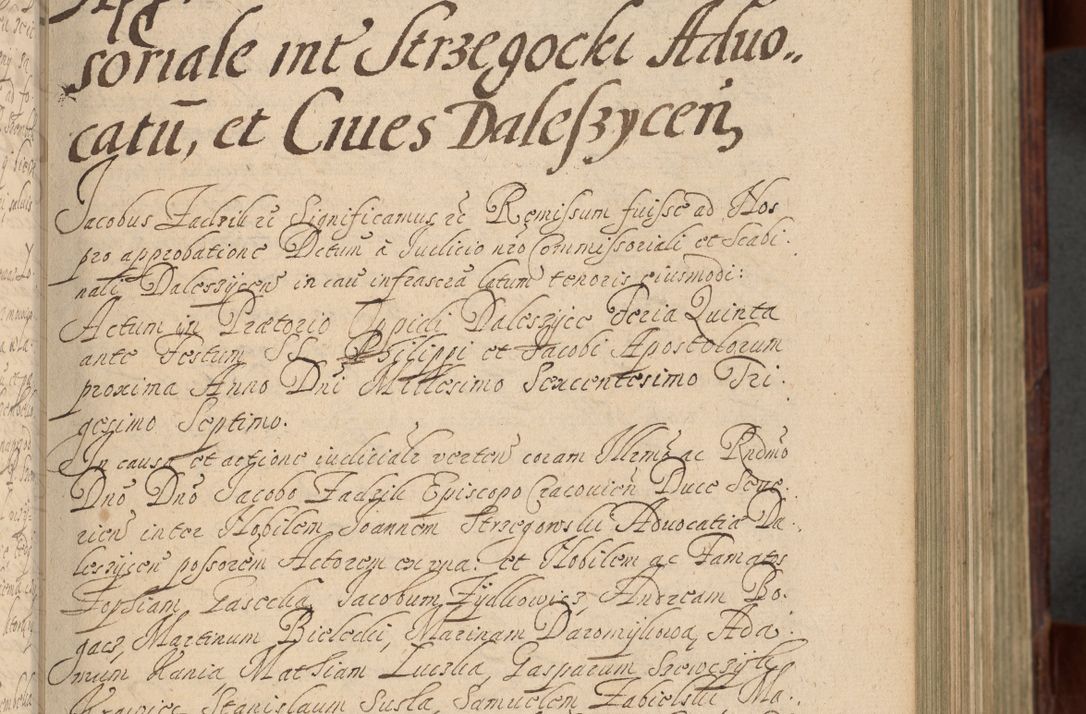 soriale int Strzegocki Aduo..
catū, et Ciues Daleſzyceń,
Jacobus Zadzik rc Significamus rc Remiſsum fuiſse ad Nos
pro approbatione Dctum à Iudicio nro Commiſsoriali et Scabi.
nali Daleszÿcen in cau infrascra latum tenoris eiusmodi:
Actum in Prætorio Oppidi Daleszÿce Feria Quinta
ante Festum SS. Philippi et Jacobi Apostolorum
proxima Anno Dni Millesimo Sexcentesimo Tri.
gesimo Septimo.
In causa et actione iudiciali verten coram Illrmo ac Rndmo
Dno Dno Jacobo Zadzik Episcopo Cracouien Duce Seue.
rien inter Nobilem Joannem Strzegowski Aduocatiæ Da.
leszÿcen poſsorem Actorem ex una. et Nobilem ac Famatos
Zophiam Gasecka, Jacobum Zÿdkowicz, Andream Bo.
gacz, Martinum Bielecki, Marinam Daromÿkowa, Ada.
mum Kania, Mathiam Luszka, Gasparum Szewczÿk
Stanislaum Susła, Samuelem Zabielski Ma.